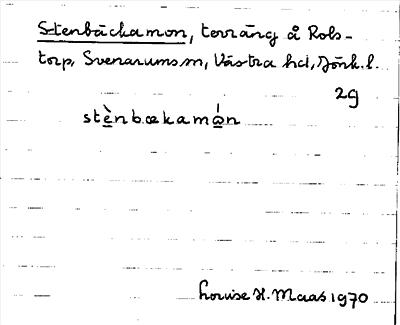 Stenbäckamon, terräng å Rols-
torp, Svenarums sn, Västra hd, Jönk. l.
29
stènbækamɷ́n
Louise H. Maas 1970